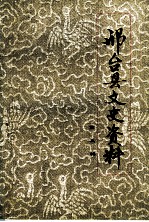 邢台县文史资料